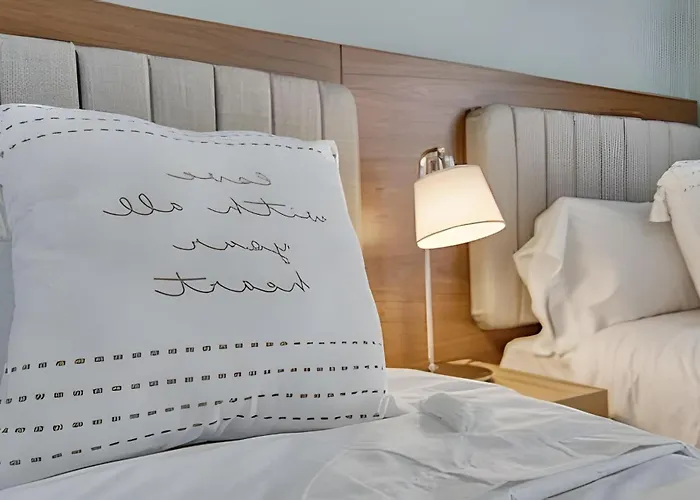 love
with all
your
heart